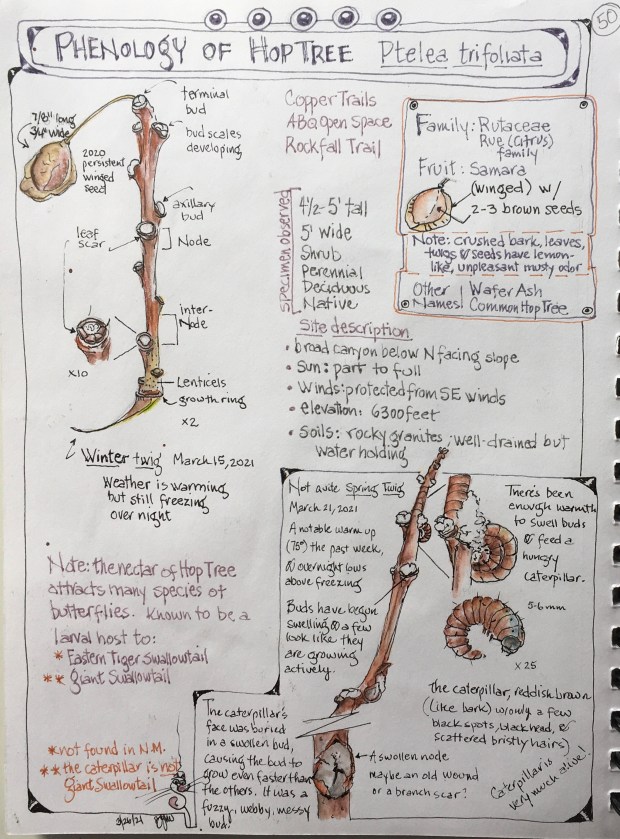 50
PHENOLOGY OF HOP TREE Ptelea trifoliata
7/8" long
3/4" wide
terminal
bud
bud scales
developing
2020
persistent
winged
seed
axillary
bud
leaf
scar
Node
inter-
Node
x10
Lenticels
growth ring
x2
Winter twig March 15, 2021
Weather is warming
but still freezing
over night
Copper Trails
ABQ Open Space
Rockfall Trail
Family: Rutaceae
Rue (Citrus)
family
Fruit: Samara
(winged) w/
2-3 brown seeds
Note: crushed bark, leaves,
twigs & seeds have lemon-
like, unpleasant musty odor
Other Names
Wafer Ash
Common Hop Tree
specimen observed
4 1/2 - 5' tall
5' wide
Shrub
Perennial
Deciduous
Native
Site description
• broad canyon below N facing slope
• Sun: part to full
• Winds: protected from SE winds
• elevation: 6300 feet
• Soils: rocky granites, well-drained but
water holding
Note: the nectar of Hop Tree
attracts many species of
butterflies. Known to be a
larval host to:
* Eastern Tiger Swallowtail
** Giant Swallowtail
*not found in N.M.
** the caterpillar is not
Giant Swallowtail
3/26/21
Not quite Spring Twig
March 21, 2021
A notable warm up
(75°) the past week,
& overnight lows
above freezing
Buds have begun
swelling & a few
look like they
are growing
actively.
There's been
enough warmth
to swell buds
& feed a
hungry
caterpillar.
5-6mm
x25
The caterpillar, reddish brown
(like bark) w/only a few
black spots, black head, &
scattered bristly hairs)
Caterpillar is
very much alive!
The caterpillar's
face was buried
in a swollen bud,
causing the bud to
grow even faster than
the others. It was a
fuzzy, webby, messy
bud.
A swollen node
maybe an old wound
or a branch scar?